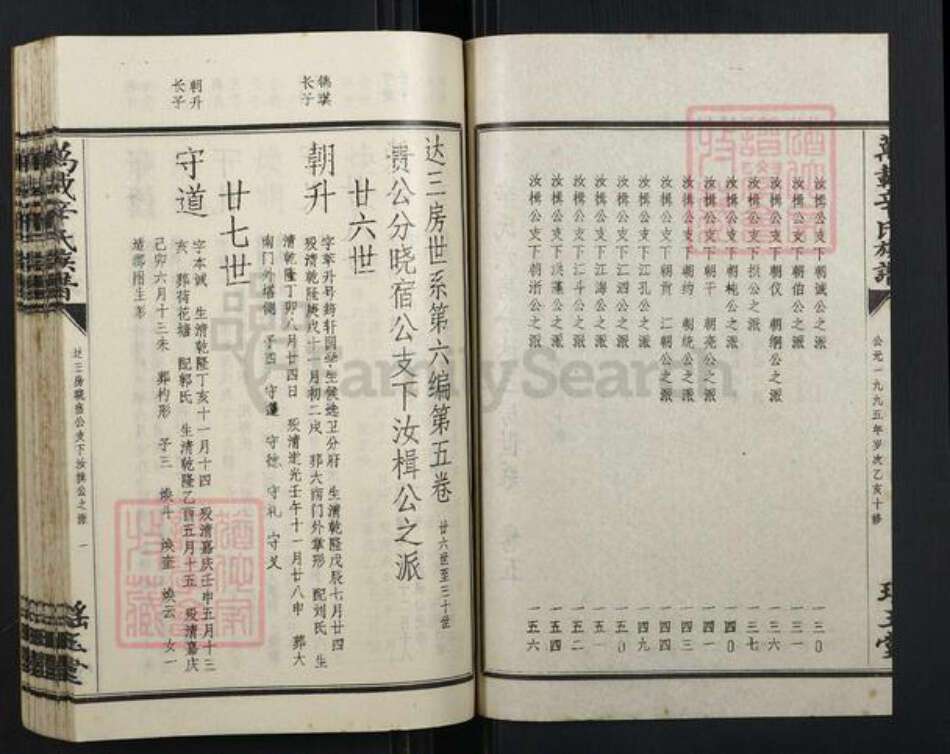 公元一九九五年岁次乙亥十修
汝楫公支下朝诚公之派 一三〇
汝楫公支下朝伯公之派 一三一
汝楫公支下朝仪 朝纲公之派 一三六
汝楫公支下 公之派 一三七
汝楫公支下朝 公之派 一四〇
汝楫公支下朝干 朝亮公之派 一四一
汝楫公支下朝约 朝统公之派 一四三
汝楫公支下朝贡 公之派 一四四
汝楫公支下江孔公之派 一四九
汝楫公支下江泗公之派 一五〇
汝楫公支下江海公之派 一五一
汝楫公支下江斗公之派 一五二
汝楫公支下 公之派 一五四
汝楫公支下朝浙公之派 一五六
达三房世系第六编第五卷 廿六世至三十世
贵公分晓宿公支下汝楫公之派
廿六世
朝升
字 升号 轩国学生候选卫分府 生清乾隆戊辰七月廿四
殁清乾隆庚戌十一月初二戌 葬大南门外掌形 配刘氏 生
清乾隆丁卯 月廿四日 殁清道光壬午十一月廿八申 葬大
南门外塔侧 子四 守道 守德 守礼 守义
廿七世
朝升
长子
守道
字本诚 生清乾隆丁亥十一月十四 殁清嘉庆壬申五月十三
亥 葬荷花塘 配郭氏 生清乾隆乙酉五月十五 殁清嘉庆
己卯六月十三未 葬杓形 子三 焕斗 焕奎 焕云 女一
萬載辛氏族譜
达三房晓宿公支下汝楫公之派 一
FamilySearch